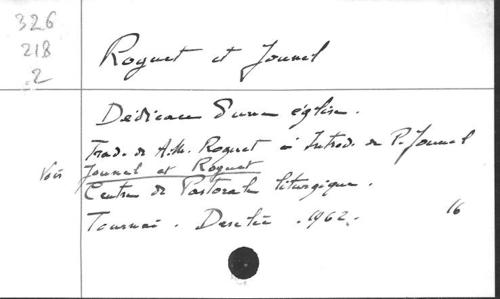 326
218
2
Roguet et Jounel
Dédicace d'une église.
Trad. de A.M. Roguet Introd. de P. Jounel
Voir Jounel et Roguet
Centre de Pastorale liturgique.
Tournai. Desclée. 1962.
16